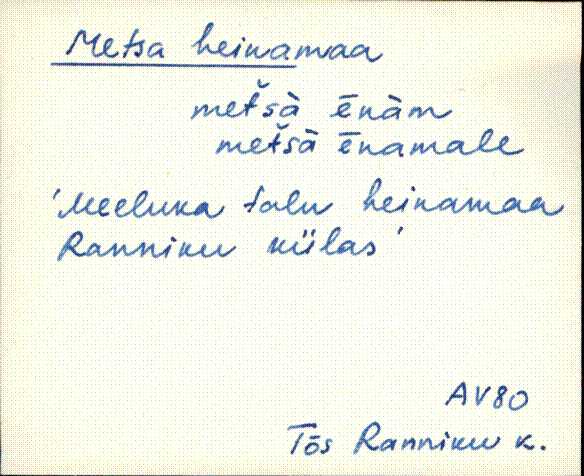 Metsa heinamaa
metšà ēnàm
metšà ēnamale
'Meeluka talu heinamaa
Ranniku külas'
AV80
Tõs Ranniku k.